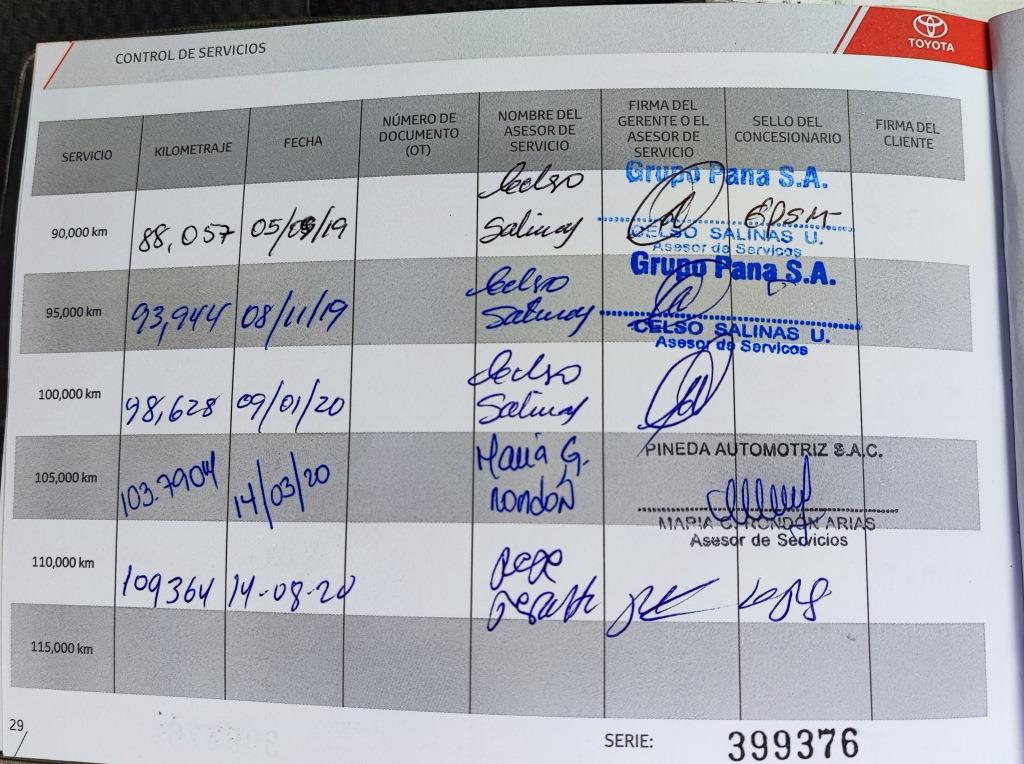 CONTROL DE SERVICIOS
TOYOTA
SERVICIO
KILOMETRAJE
FECHA
NÚMERO DE
DOCUMENTO
(OT)
NOMBRE DEL
ASESOR DE
SERVICIO
FIRMA DEL
GERENTE O EL
ASESOR DE
SERVICIO
SELLO DEL
CONCESIONARIO
FIRMA DEL
CLIENTE
90,000 km
88,057
05/09/19
Celso
Salinas
Grupo Pana S.A.
CELSO SALINAS U.
Asesor de Servicos
95,000 km
93,944
08/11/19
Celso
Salinas
Grupo Pana S.A.
CELSO SALINAS U.
Asesor de Servicos
100,000 km
98,628
09/01/20
Celso
Salinas
105,000 km
103.7904
14/03/20
Maria G.
Rondón
PINEDA AUTOMOTRIZ S.A.C.
MARIA G. RONDÓN ARIAS
Asesor de Servicios
110,000 km
109364
14-08-20
115,000 km
29
SERIE:
399376